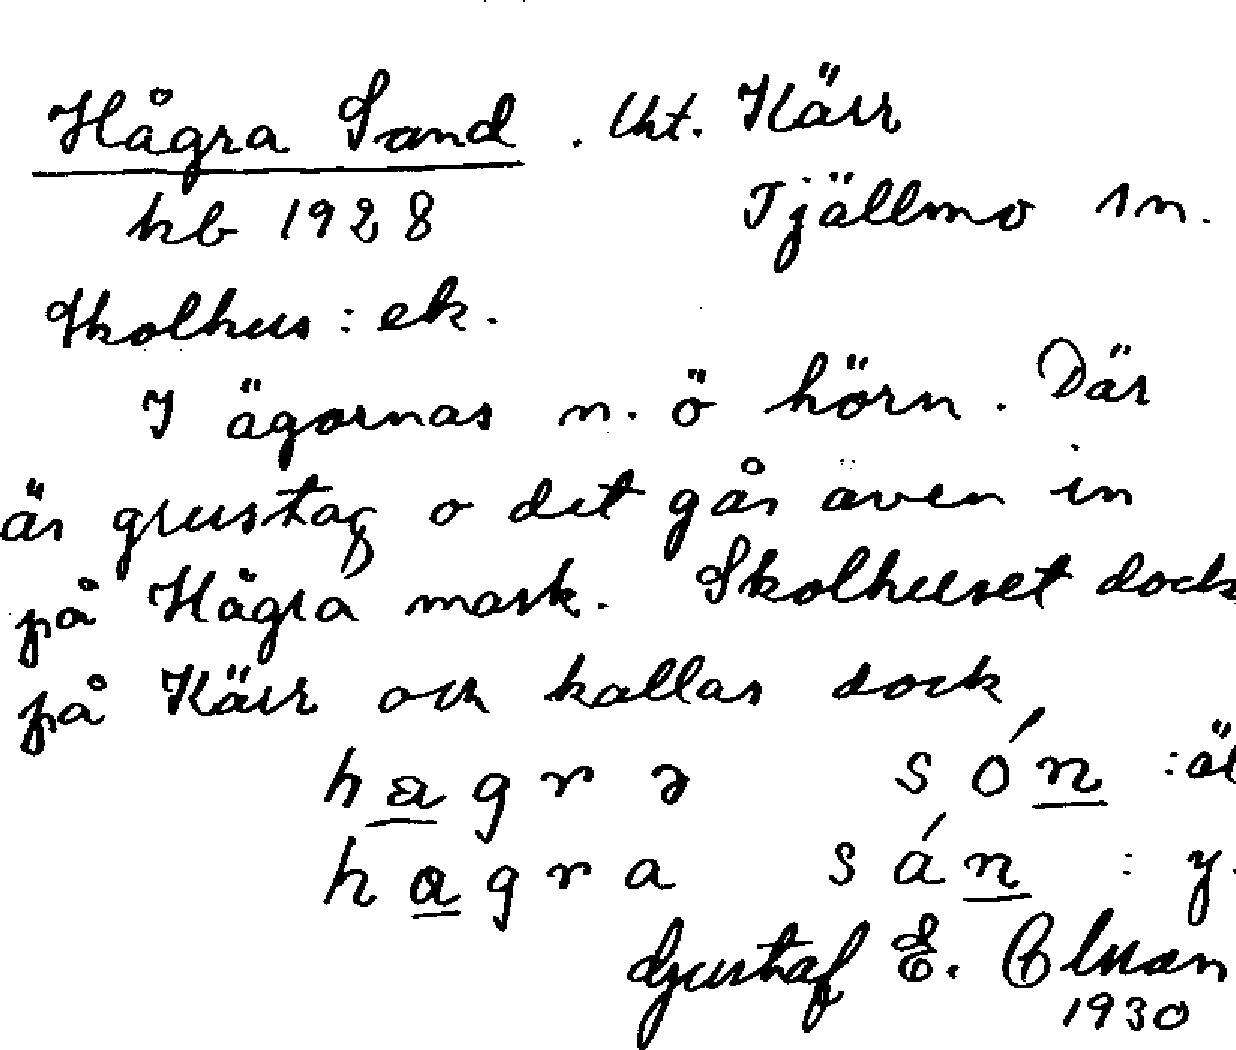 Hågra Sand . Utt. Kärr
hb 1928 Tjällmo sn.
Skolhus : ek.
I ägornas n. ö hörn. Där
är grustag o det går även in
på Hågra mark. Skolhuset dock
på Kärr och kallas dock
hagrə són : ä
hagra sán : y.
Gustaf E.
1930